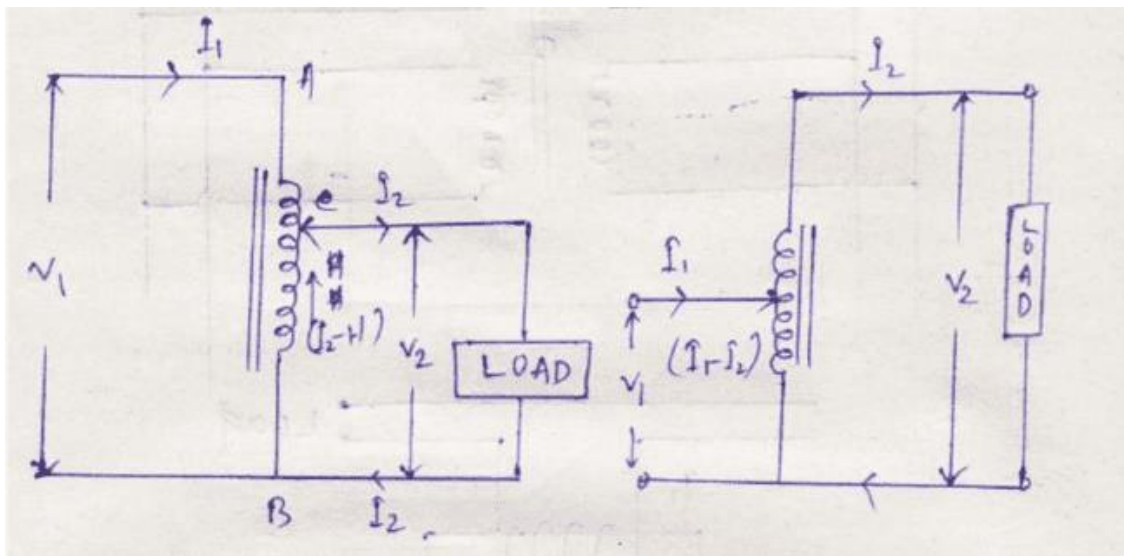 I₁
A
V₁
e
I₂
(I₂-I1)
V₂
LOAD
B
I₂
I₂
I₁
(I₁-I₂)
V₁
V₂
LOAD